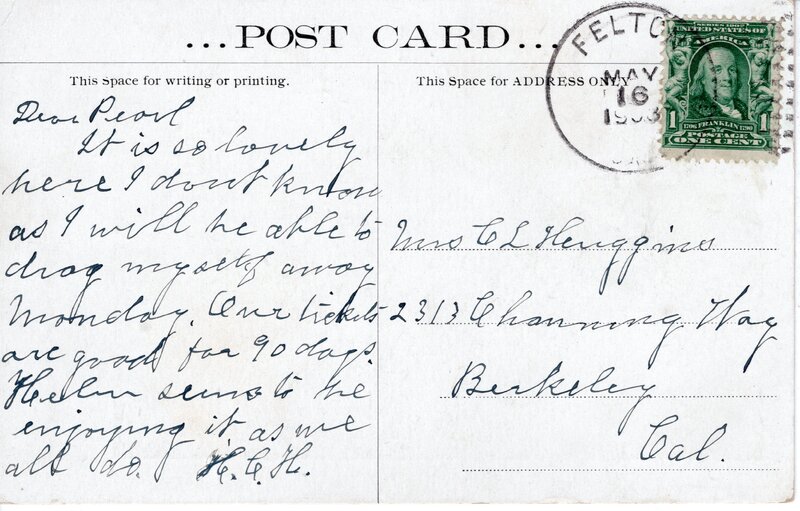 ...POST CARD...
This Space for writing or printing.
Dear Pearl
It is so lovely
here I dont know
as I will be able to
drag myself away
Monday. Our tickets
are good for 90 days.
Helen seems to be
enjoying it as we
all do. H.C.H.
This Space for ADDRESS ONLY
FELTO
MAY
16
1908
CAL
SERIES 1902
UNITED STATES OF
AMERICA
1706 FRANKLIN 1790
1 POSTAGE 1
ONE CENT
Mrs C L Huggins
2313 Channing Way
Berkeley
Cal.